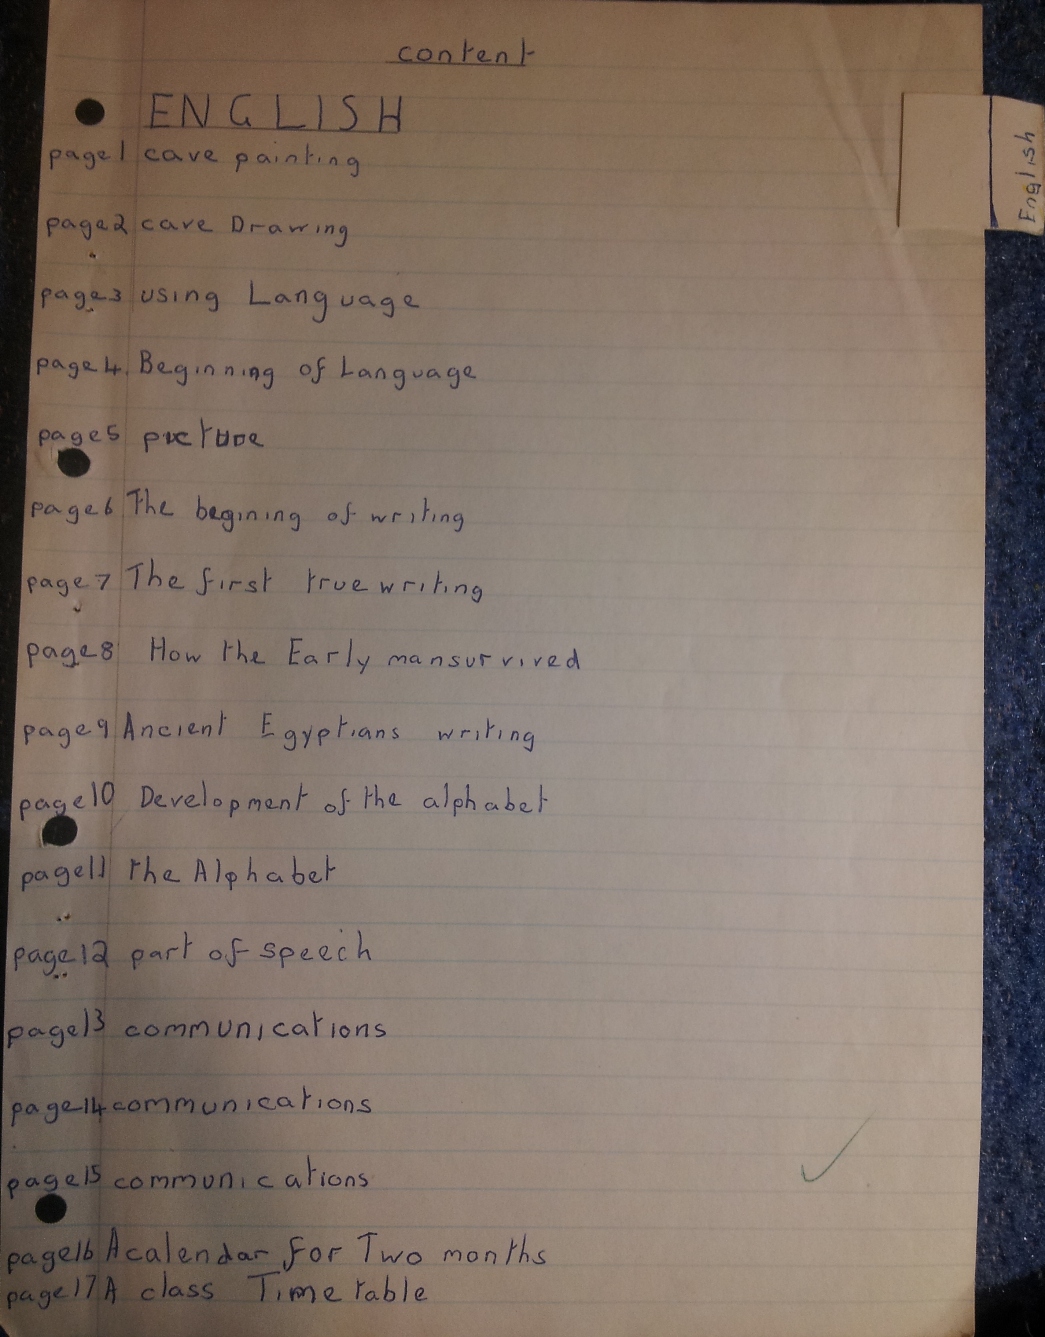 content
ENGLISH
English
page1 cave painting
page2 cave Drawing
page3 using Language
page4 Beginning of Language
page5 picture
page6 The begining of writing
page7 The first true writing
page8 How the Early man survived
page9 Ancient Egyptians writing
page10 Development of the alphabet
page11 the Alphabet
page12 part of speech
page13 communications
page14 communications
page15 communications
page16 A calendar for Two months
page17 A class Time table